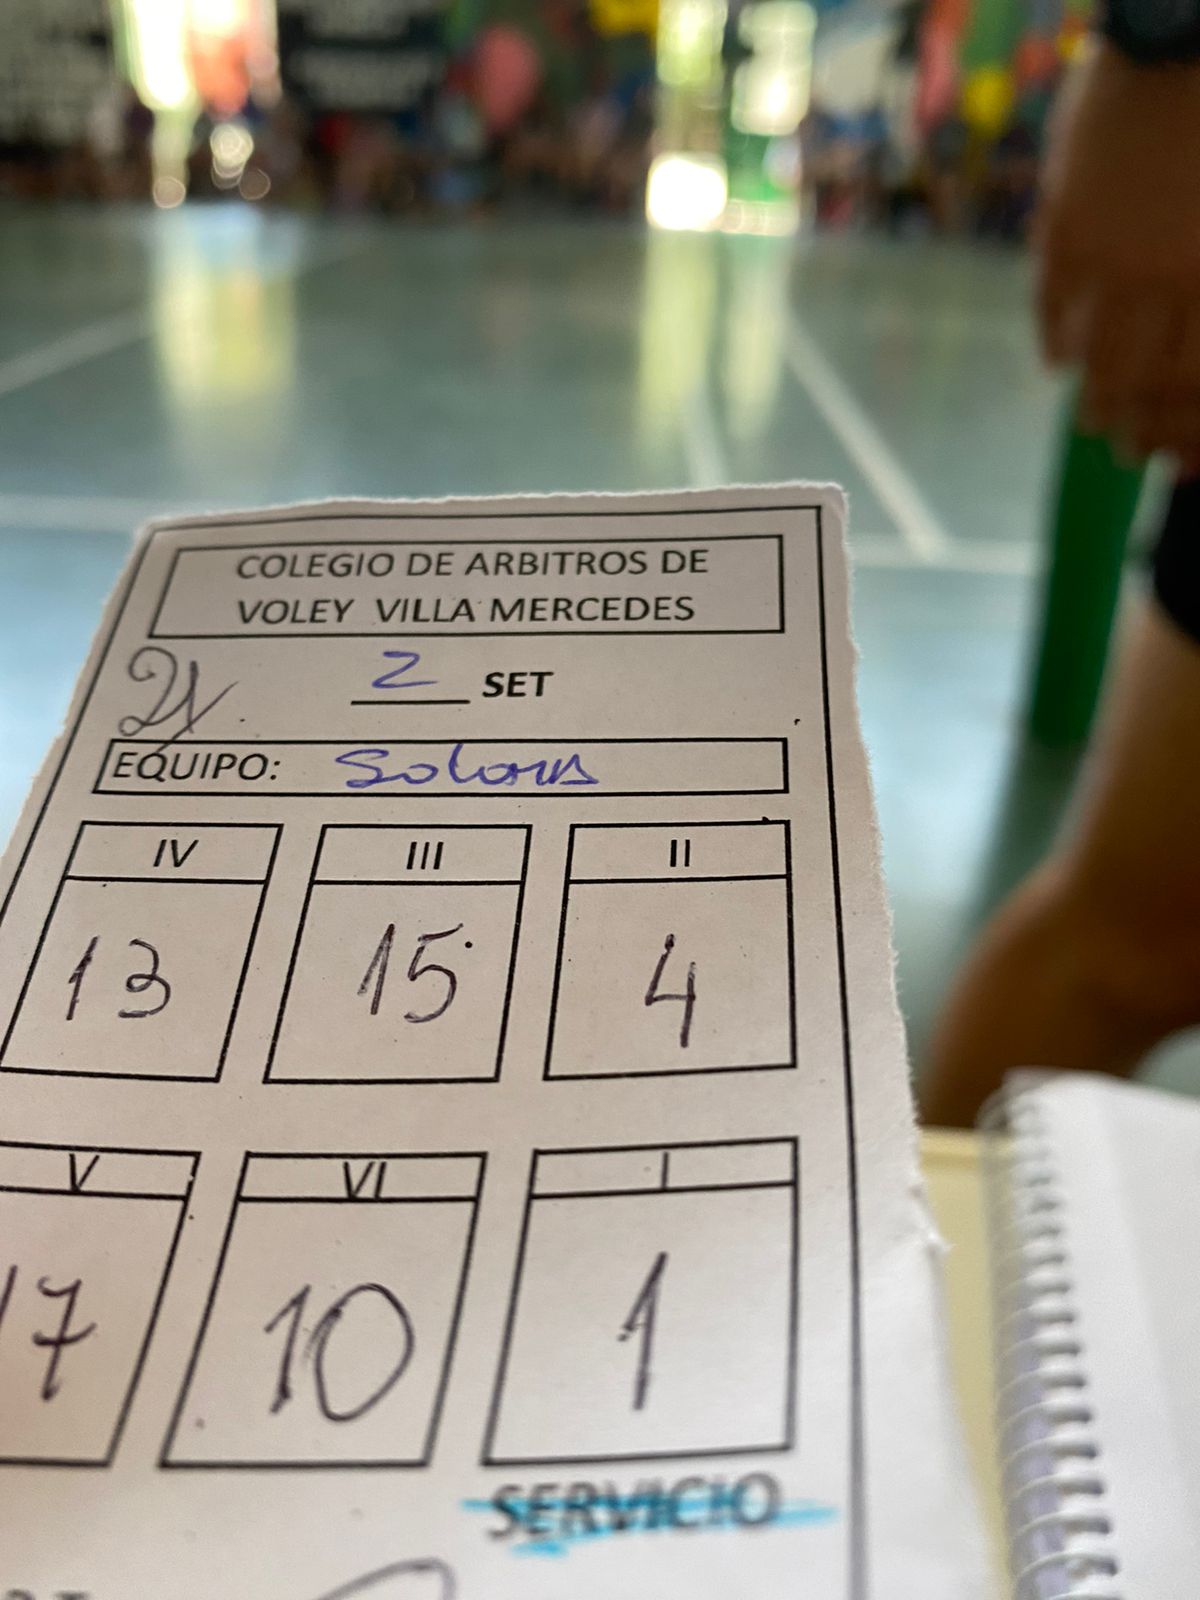 COLEGIO DE ARBITROS DE
VOLEY VILLA MERCEDES
2 SET
EQUIPO: Solares
IV III II
13 15 4
V VI I
17 10 1
SERVICIO